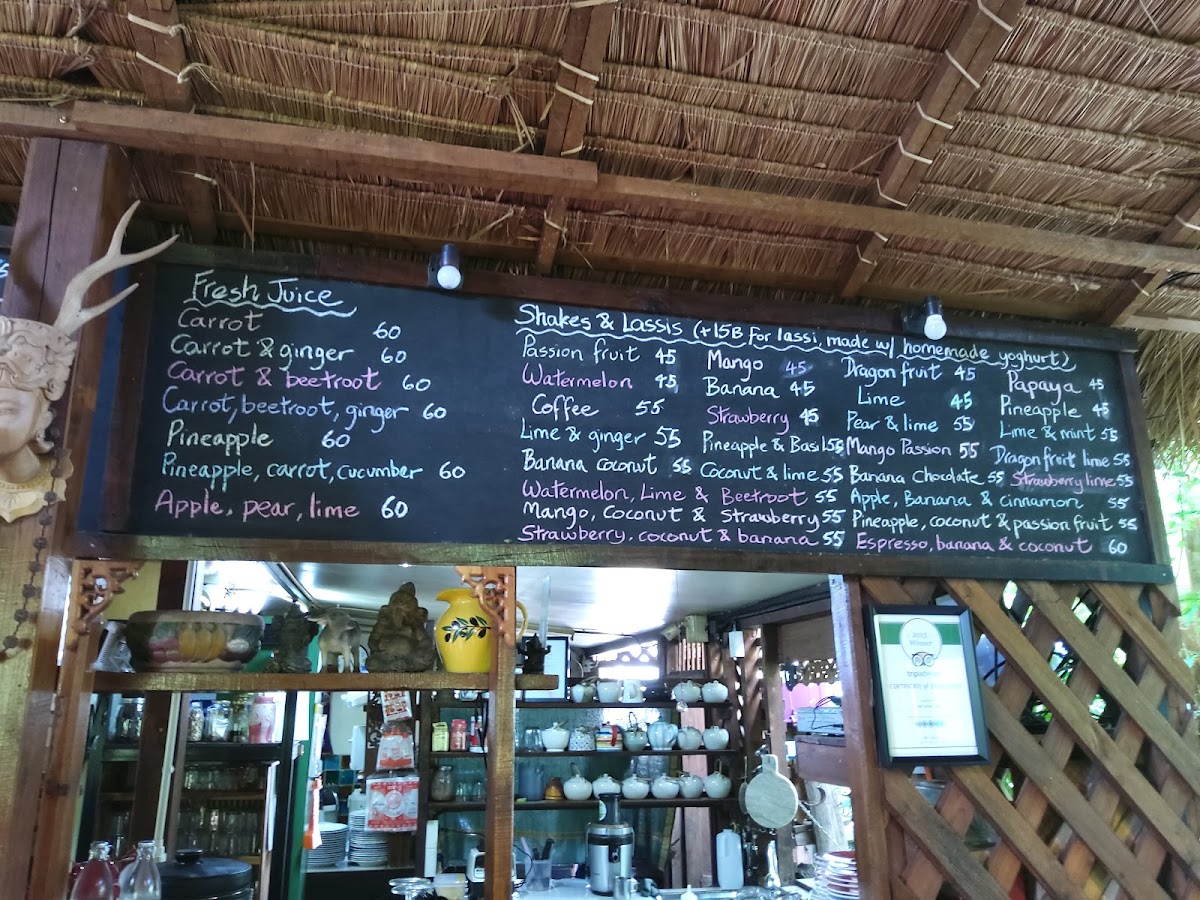 Fresh Juice
Carrot 60
Carrot & ginger 60
Carrot & beetroot 60
Carrot, beetroot, ginger 60
Pineapple 60
Pineapple, carrot, cucumber 60
Apple, pear, lime 60
Shakes & Lassis (+15B for lassi, made w/ homemade yoghurt)
Passion fruit 45
Watermelon 45
Coffee 55
Lime & ginger 55
Banana coconut 55
Watermelon, Lime & Beetroot 55
Mango, Coconut & Strawberry 55
Strawberry, coconut & banana 55
Mango 45
Banana 45
Strawberry 45
Pineapple & Basil 55
Coconut & lime 55
Dragon fruit 45
Lime 45
Pear & lime 55
Mango Passion 55
Banana Chocolate 55
Apple, Banana & cinnamon 55
Pineapple, coconut & passion fruit 55
Espresso, banana & coconut 60
Papaya 45
Pineapple 45
Lime & mint 55
Dragonfruit lime 55
Strawberry lime 55